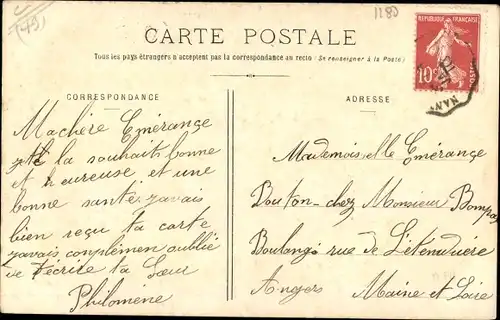 (49)
1180
CARTE POSTALE
Tous les pays étrangers n'acceptent pas la correspondance au recto (Se renseigner à la Poste)
REPUBLIQUE FRANÇAISE
10
POSTES
NAN
CORRESPONDANCE
ADRESSE
Machère Emérange
la souhait bonne
et heureuse et une
bonne santé javais
bien reçu ta carte
javais conplémen oublié
de técrire ta Sœur
Philomène
Mademoiselle Emérange
Bouton chez Monsieur
Boulangé rue de Létenduère
Angers Maine et Loire